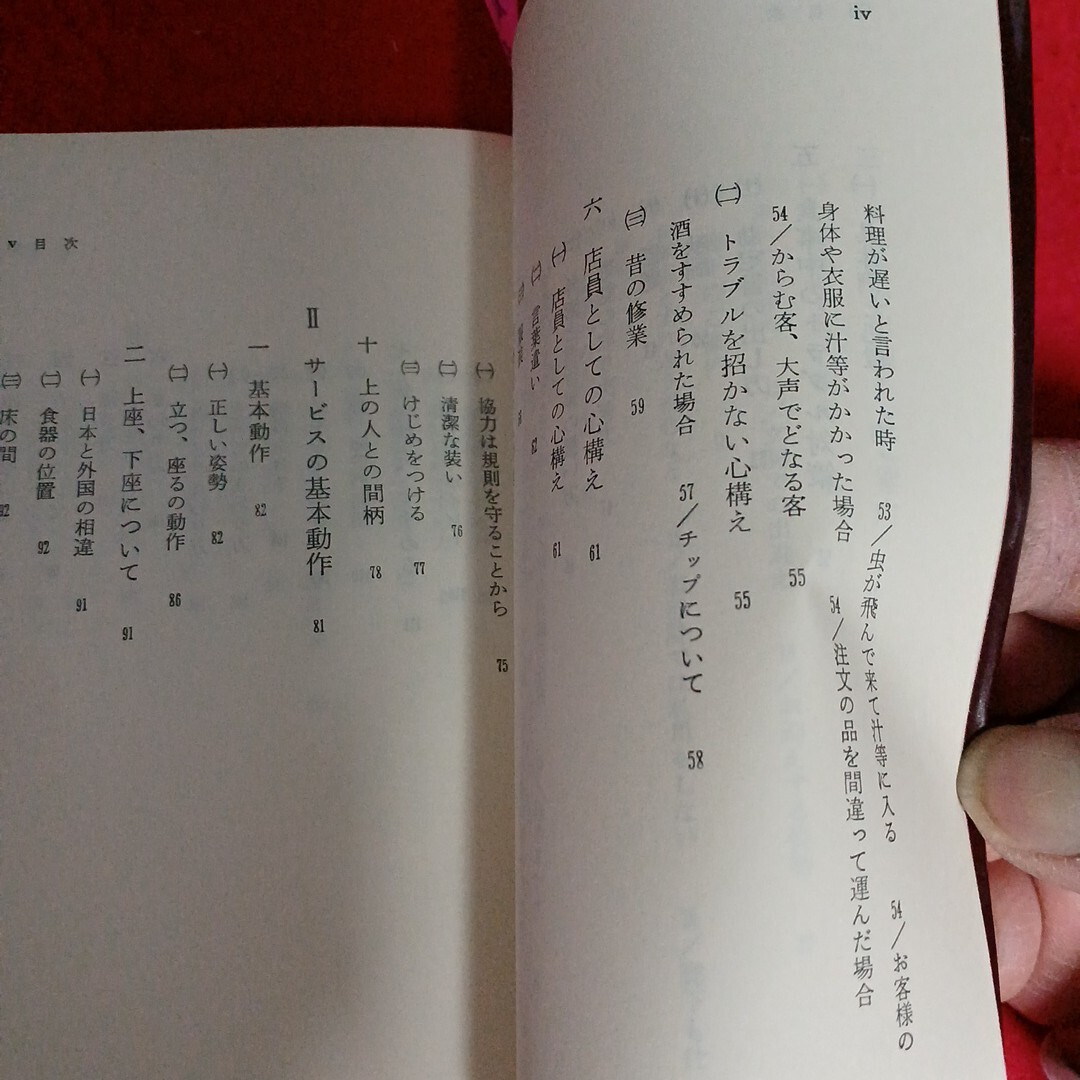 iv
料理が遅いと言われた時 53／虫が飛んで来て汁等に入る 54／お客様の
身体や衣服に汁等がかかった場合 54／注文の品を間違って運んだ場合
54／からむ客、大声でどなる客 55
㈡ トラブルを招かない心構え 55
酒をすすめられた場合 57／チップについて 58
㈢ 昔の修業 59
六 店員としての心構え 61
㈠ 店員としての心構え 61
㈡ 言葉遣い 62
㈠ 協力は規則を守ることから 75
㈡ 清潔な装い 76
㈢ けじめをつける 77
十 上の人との間柄 78
Ⅱ サービスの基本動作 81
一 基本動作 82
㈠ 正しい姿勢 82
㈡ 立つ、座るの動作 86
二 上座、下座について 91
㈠ 日本と外国の相違 91
㈡ 食器の位置 92
㈢ 床の間 92
v 目次